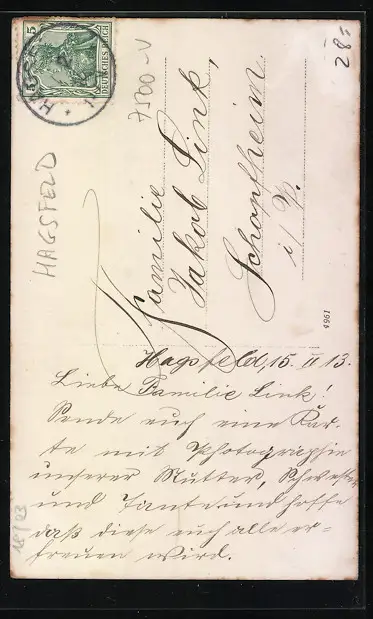 5
DEUTSCHES REICH
5
HAGSFELD
7500-V
28.-
Familie
Jakob Link,
Schopfheim
i/
4961
Hagsfeld, 15. II 13.
Liebe Familie Link!
Sende euch eine Kar-
te mit Photographie
unserer Mutter, Schwester
und Tante und hoffe
daß diese euch alle er-
freuen wird.